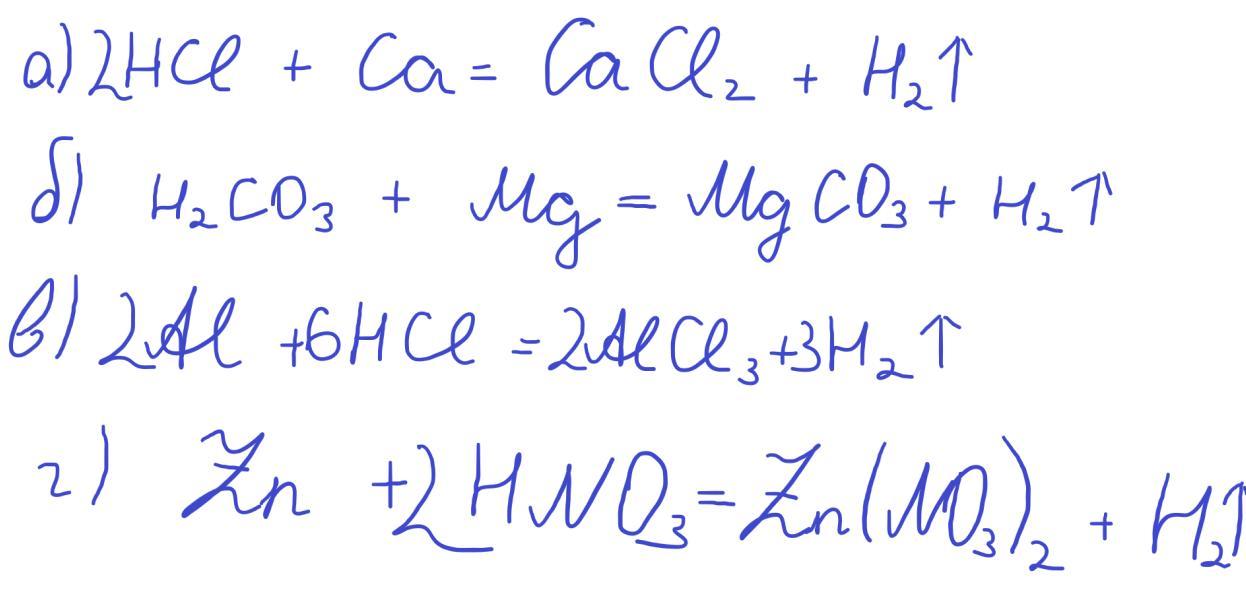 а) 2HCl + Ca = CaCl₂ + H₂↑
б) H₂CO₃ + Mg = MgCO₃ + H₂↑
в) 2Al + 6HCl = 2AlCl₃ + 3H₂↑
г) Zn + 2HNO₃ = Zn(NO₃)₂ + H₂↑